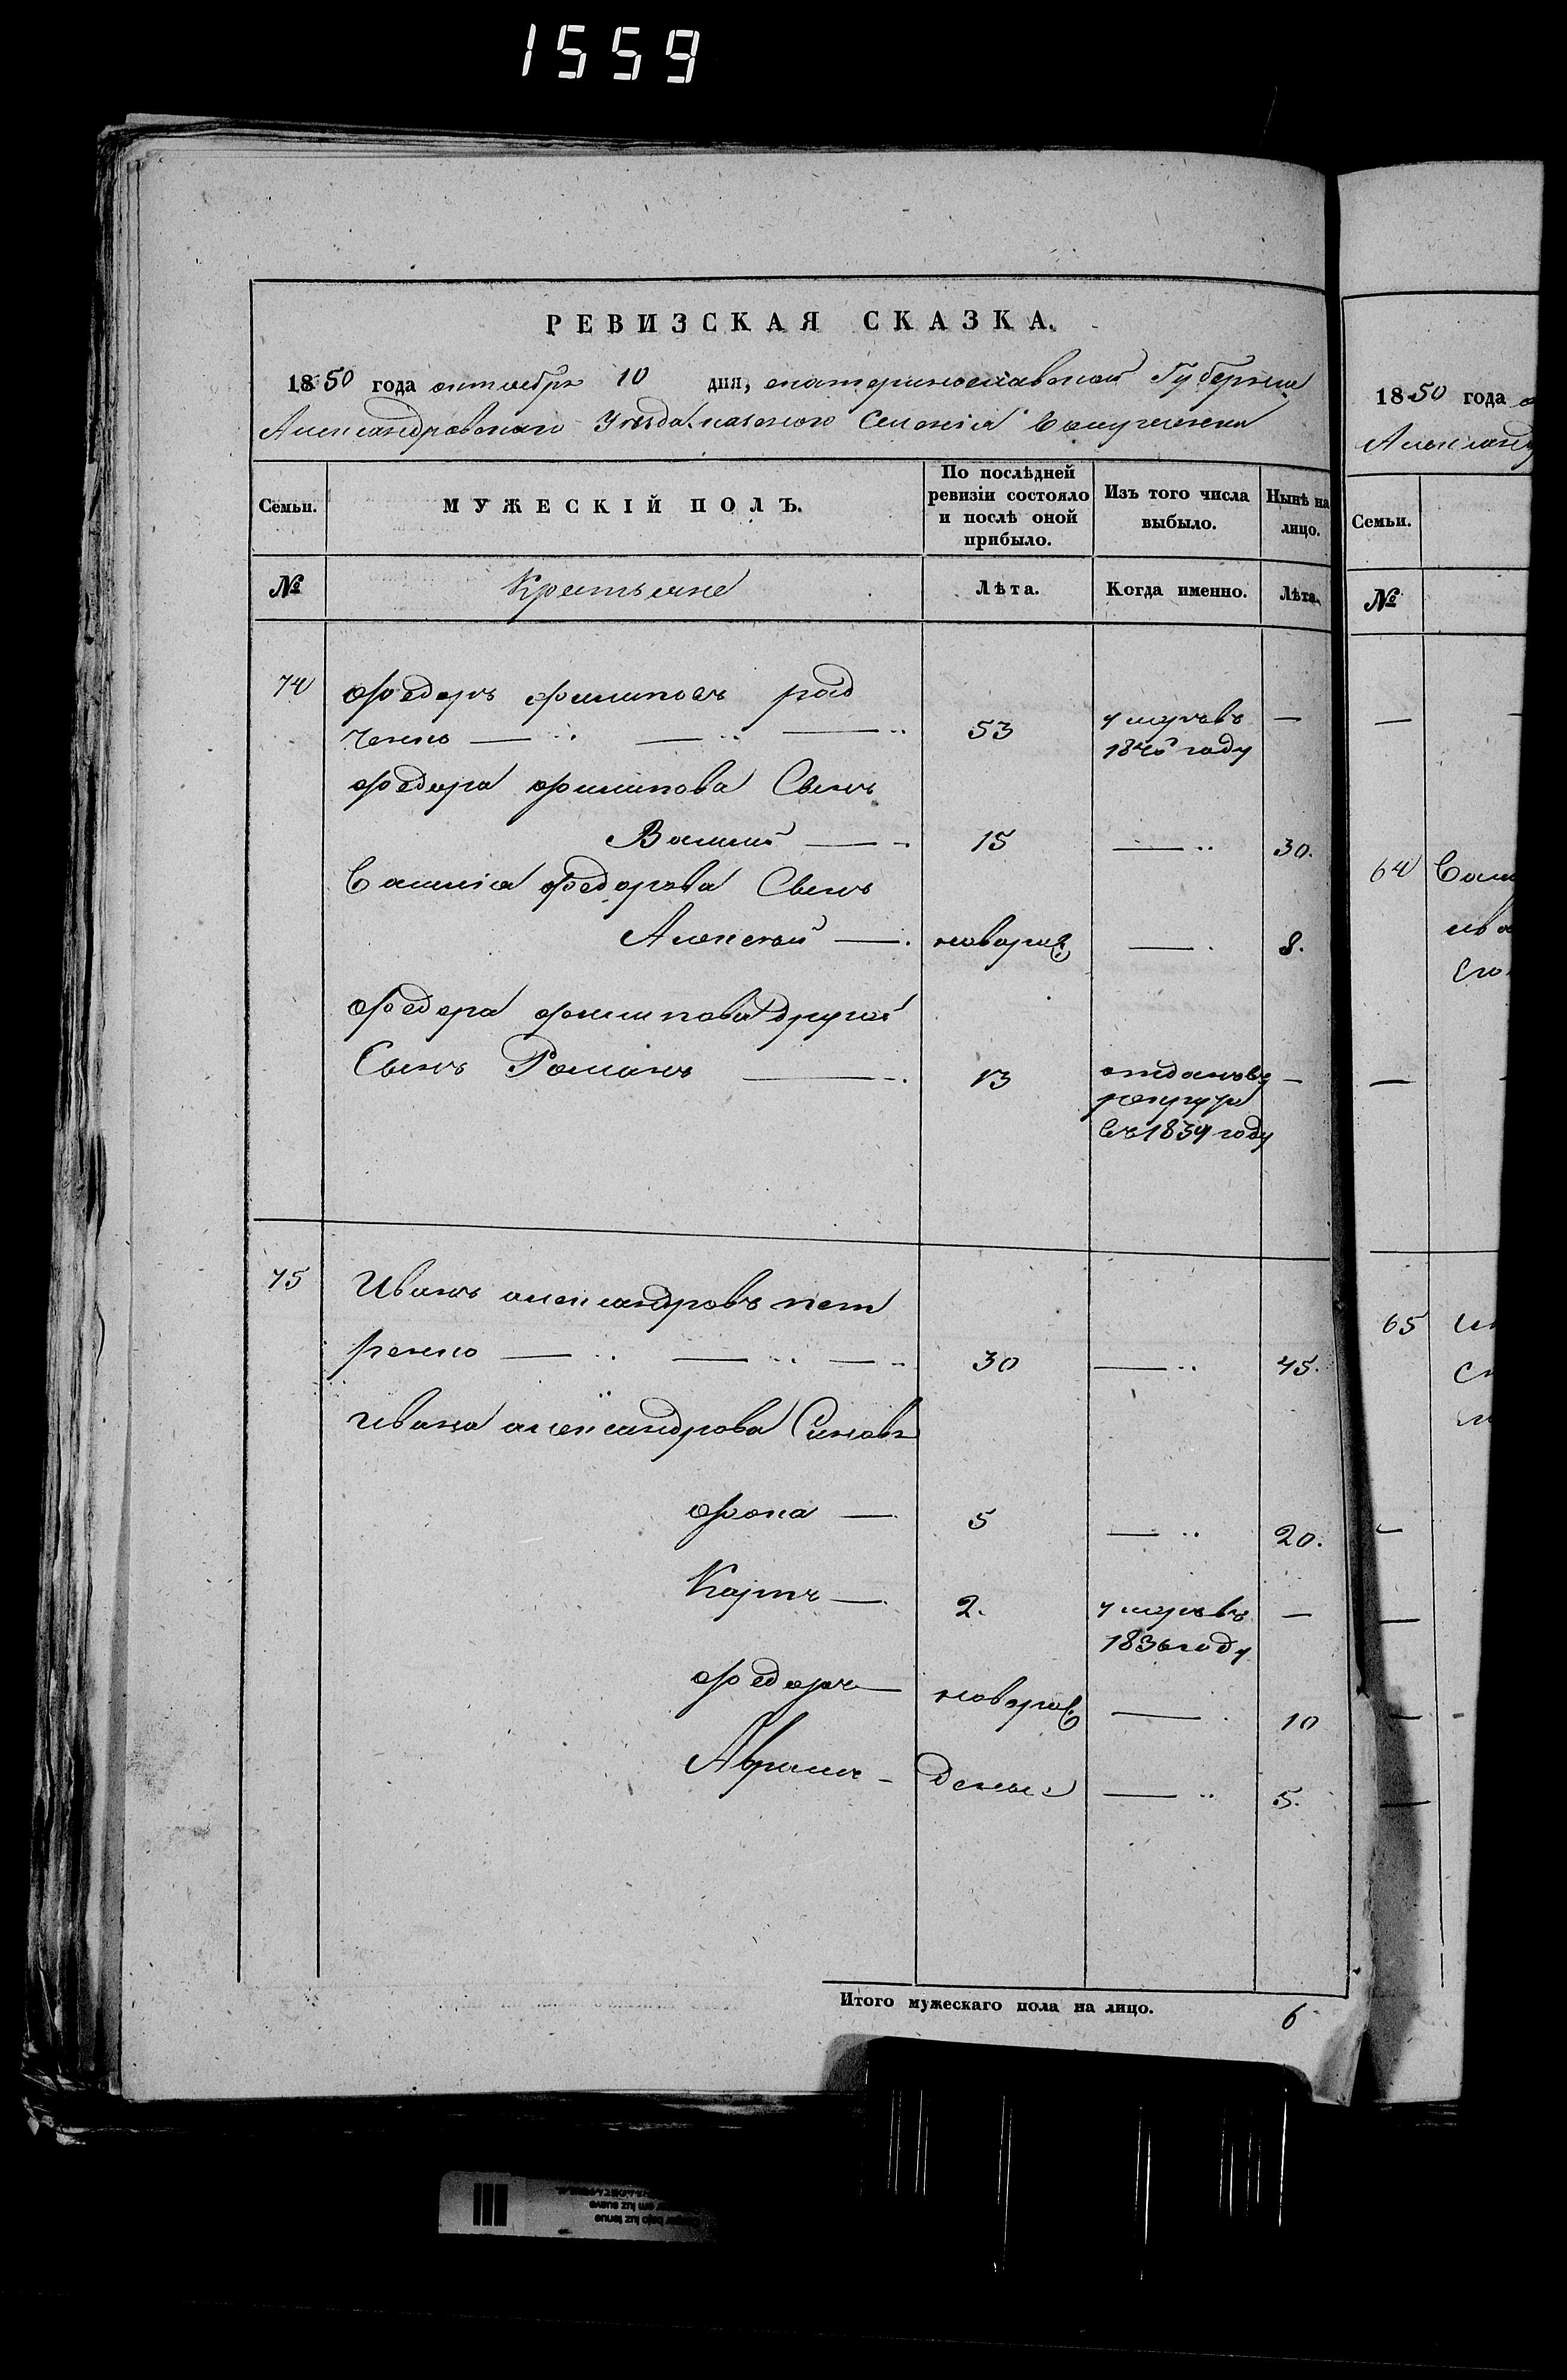 1559
РЕВИЗСКАЯ СКАЗКА.
1850 года октября 10 дня, екатеринославской Губернии
Александровскаго Уезда казеного Селенія
Семьи. МУЖЕСКІЙ ПОЛЪ. По послѣдней ревизіи состояло и послѣ оной прибыло. Изъ того числа выбыло. Нынѣ на лицо.
№ Крестьяне Лѣта. Когда именно. Лѣта.
74 Федоръ филиповъ рад
ченко — — — 53 умеръ въ 1840 году —
федора филипова Сынъ
Василий — 15 — 30.
Василіа федорова Сынъ
Алексей — новорож — 8.
Федора филипова другой
Сынъ Романъ — 13 отданъ въ рекруты въ 1834 году —
75 Иванъ александровъ пет
ренко — — — 30 — 45.
Ивана александрова Синовя
фока — 5 — 20.
Карпъ — 2. умеръ въ 1836 году —
федоръ — новорож — 10
Абрамъ — деные — 5.
Итого мужескаго пола на лицо. 6
1850 года
Семьи.
№
64
65